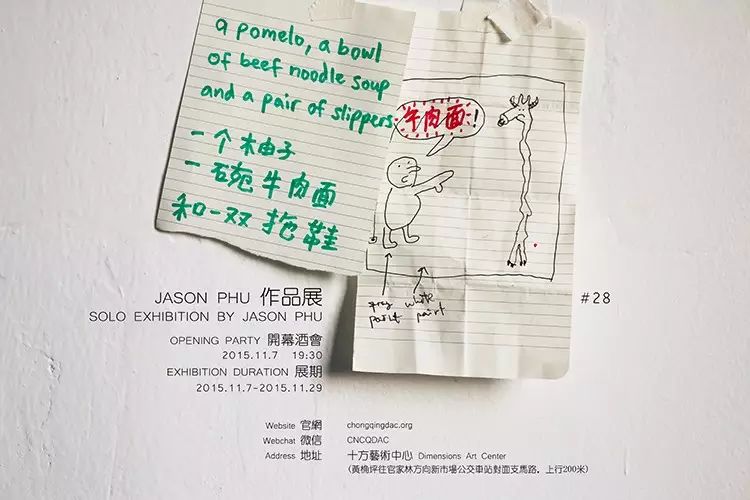 a pomelo, a bowl
of beef noodle soup
and a pair of slippers.
一个柚子
一碗牛肉面
和一双拖鞋
牛肉面!
grey white
paint paint
JASON PHU 作品展
SOLO EXHIBITION BY JASON PHU
#28
OPENING PARTY 開幕酒會
2015.11.7 19:30
EXHIBITION DURATION 展期
2015.11.7-2015.11.29
Website 官網 chongqingdac.org
Webchat 微信 CNCQDAC
Address 地址 十方藝術中心 Dimensions Art Center
(黃桷坪往官家林方向新市場公交車站對面支馬路，上行200米)